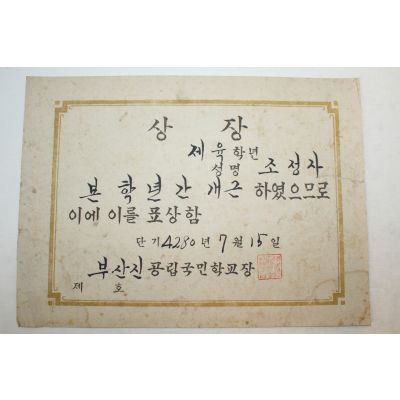 상 장
제육학년
성명 조정자
본학년간 개근 하였으므로
이에 이를 표상함
단기4280년 7월 15일
부산진공립국민학교장
제 호